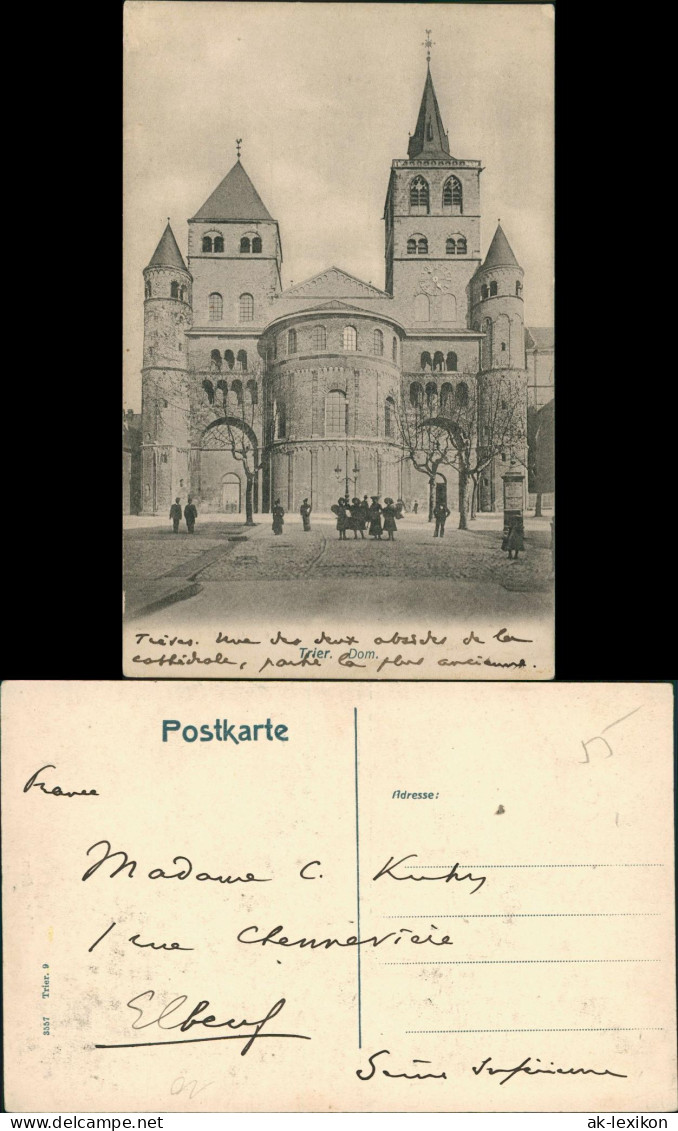 Trèves. Une des deux absides de la
cathédrale, partie la plus ancienne.
Trier. Dom.
Postkarte
France
Adresse:
Madame C. Kuhn
1 rue Chennevière
Elbeuf
Seine Inférieure
3557 Trier. 9
ak-lexikon